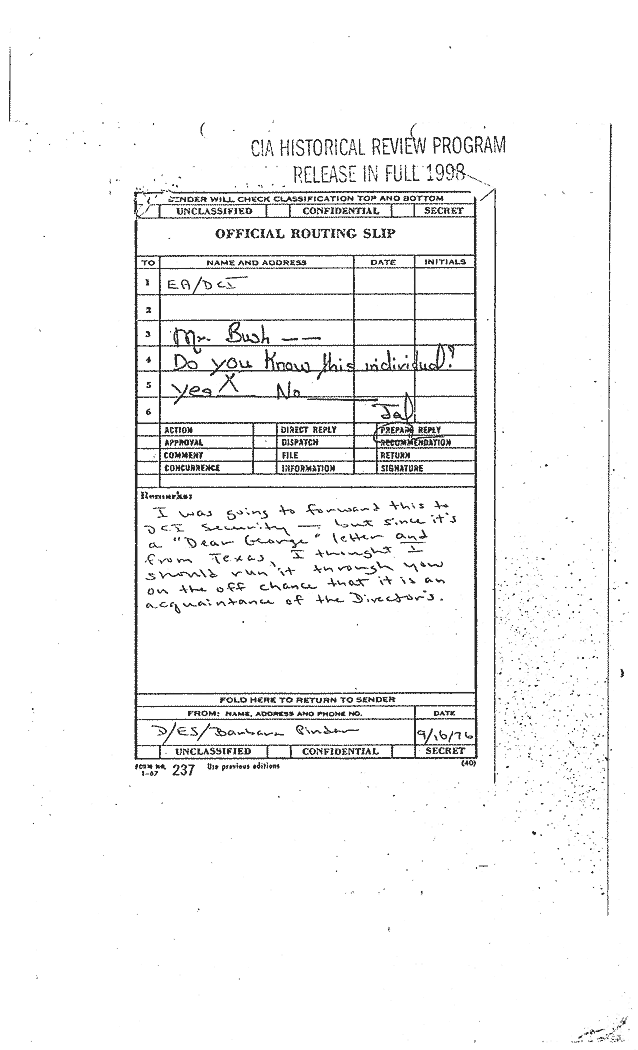 CIA HISTORICAL REVIEW PROGRAM
RELEASE IN FULL 1998
SENDER WILL CHECK CLASSIFICATION TOP AND BOTTOM
UNCLASSIFIED CONFIDENTIAL SECRET
OFFICIAL ROUTING SLIP
TO NAME AND ADDRESS DATE INITIALS
1 EA/DCI
2
3 Mr. Bush --
4 Do you know this individual?
5 Yes X No
6
ACTION DIRECT REPLY PREPARE REPLY
APPROVAL DISPATCH RECOMMENDATION
COMMENT FILE RETURN
CONCURRENCE INFORMATION SIGNATURE
Remarks:
I was going to forward this to
DCI Security — but since it's
a "Dear George" letter and
from Texas, I thought I
should run it through you
on the off chance that it is an
acquaintance of the Director's.
FOLD HERE TO RETURN TO SENDER
FROM: NAME, ADDRESS AND PHONE NO. DATE
D/ES/Barbara Pindar 9/16/76
UNCLASSIFIED CONFIDENTIAL SECRET
FORM NO. 237 Use previous editions (40)
1-67